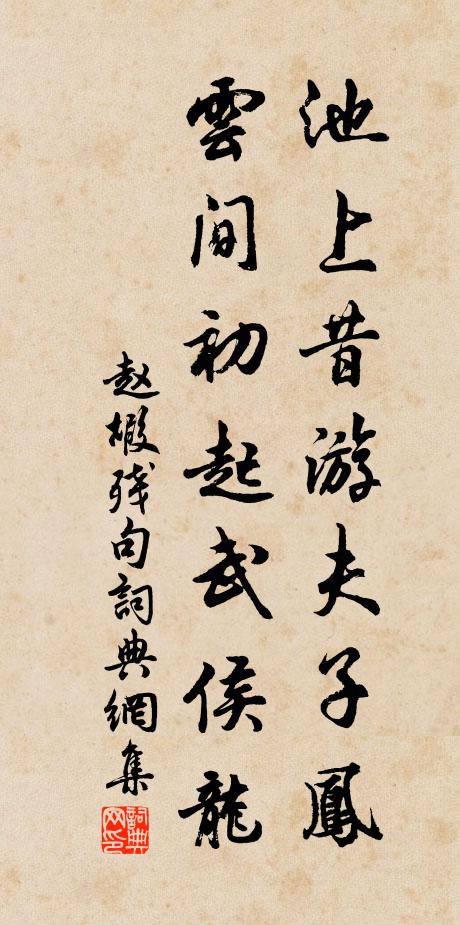 池上昔游夫子鳳
雲間初起武侯龍
赵嘏残句詞典網集
詞典网印